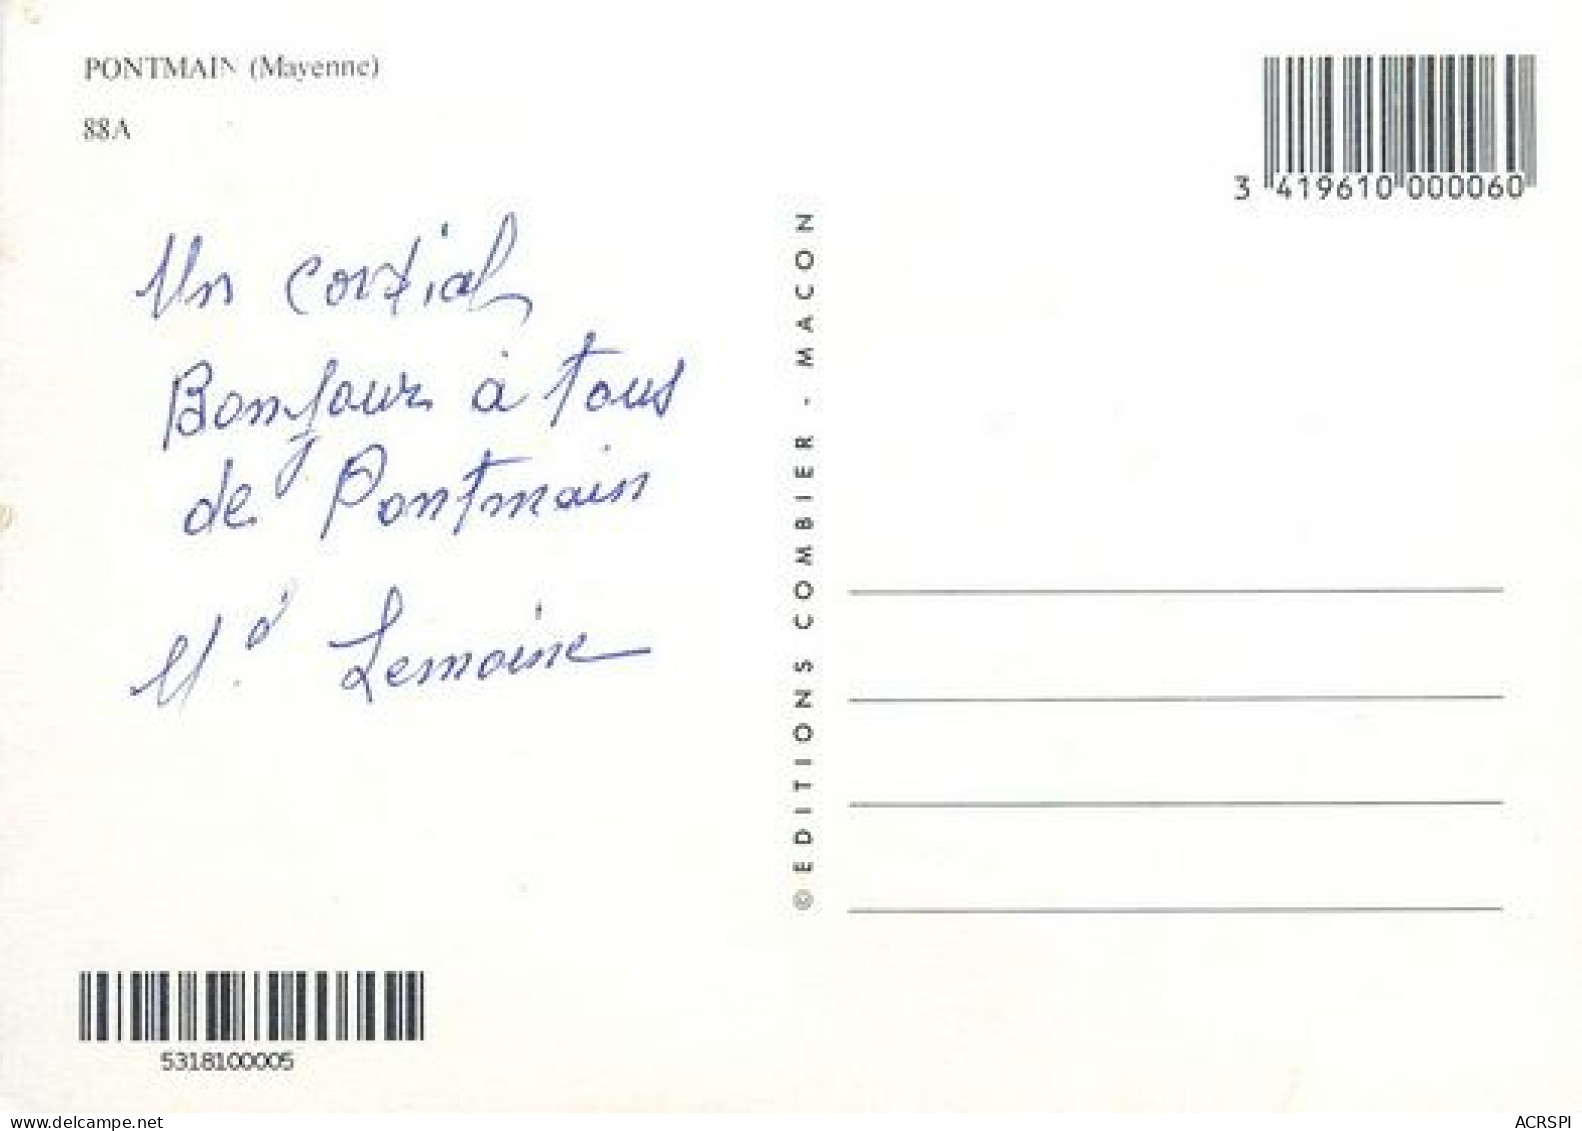 PONTMAIN (Mayenne)
88A
3 419610 000060
Un cordial
Bonjour à tous
de Pontmain
Lemoine
© EDITIONS COMBIER - MACON
5318100005
www.delcampe.net
ACRSPI